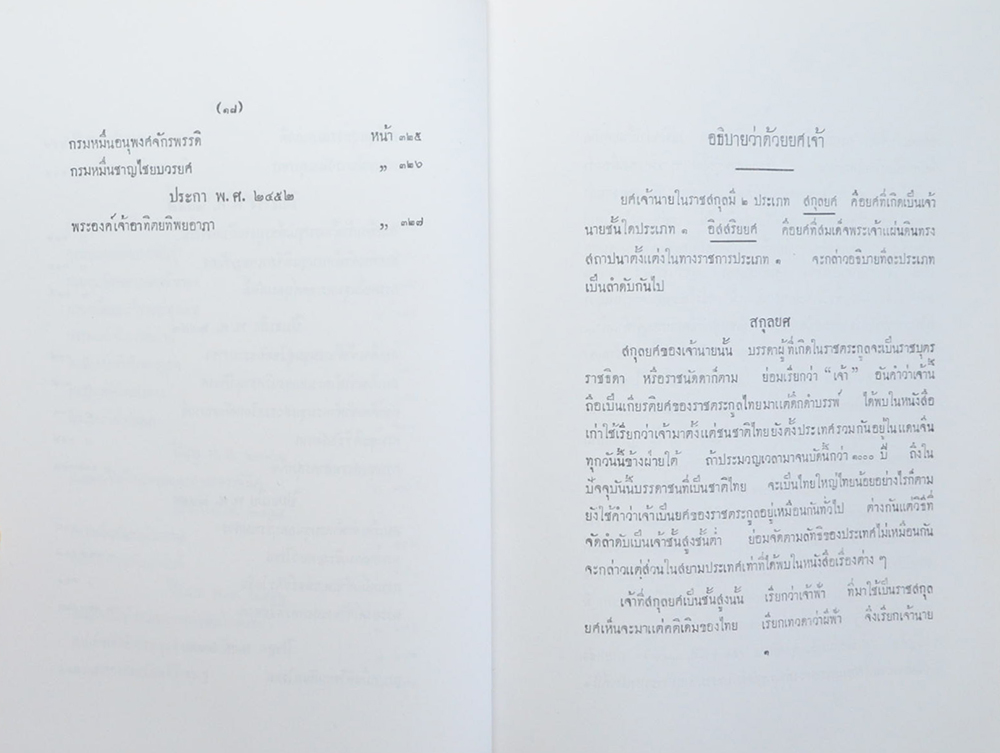 (๑๘)
กรมหมื่นอนุพงศ์จักรพรรดิ หน้า ๓๒๕
กรมหมื่นชาญไชยบวรยศ ,, ๓๒๖
ประกา พ.ศ. ๒๔๕๒
พระองค์เจ้าอาทิตยทิพยอาภา ,, ๓๒๘
อธิบายว่าด้วยยศเจ้า
ยศเจ้านายในราชสกุลมี ๒ ประเภท สกุลยศ คือยศที่เกิดเป็นเจ้า
นายชั้นใดประเภท ๑ อิสสริยยศ คือยศที่สมเด็จพระเจ้าแผ่นดินทรง
สถาปนาตั้งแต่งในทางราชการประเภท ๑ จะกล่าวอธิบายทีละประเภท
เป็นลำดับกันไป
สกุลยศ
สกุลยศของเจ้านายนั้น บรรดาผู้ที่เกิดในราชตระกูลจะเป็นราชบุตร
ราชธิดา หรือราชนัดดาก็ตาม ย่อมเรียกว่า “เจ้า” อันคำว่าเจ้านี้
ถือเป็นเกียรติยศของราชตระกูลไทยมาแต่ดึกดำบรรพ์ ได้พบในหนังสือ
เก่าใช้เรียกว่าเจ้ามาตั้งแต่ชนชาติไทยยังตั้งประเทศรวมกันอยู่ในแดนจีน
ทุกวันนี้ข้างฝ่ายใต้ ถ้าประมวญเวลามาจนบัดนี้กว่า ๑๐๐๐ ปี ถึงใน
ปัจจุบันนี้บรรดาชนที่เป็นชาติไทย จะเป็นไทยใหญ่ไทยน้อยอย่างไรก็ตาม
ยังใช้คำว่าเจ้าเป็นยศของราชตระกูลอยู่เหมือนกันทั่วไป ต่างกันแต่วิธีที่
จัดลำดับเป็นเจ้าชั้นสูงชั้นต่ำ ย่อมจัดตามลัทธิของประเทศไม่เหมือนกัน
จะกล่าวแต่ส่วนในสยามประเทศเท่าที่ได้พบในหนังสือเรื่องต่าง ๆ
เจ้าที่สกุลยศเป็นชั้นสูงนั้น เรียกว่าเจ้าฟ้า ที่มาใช้เป็นราชสกุล
ยศเห็นจะมาแต่คติเดิมของไทย เรียกเทวดาว่าผีฟ้า จึงเรียกเจ้านาย
๑